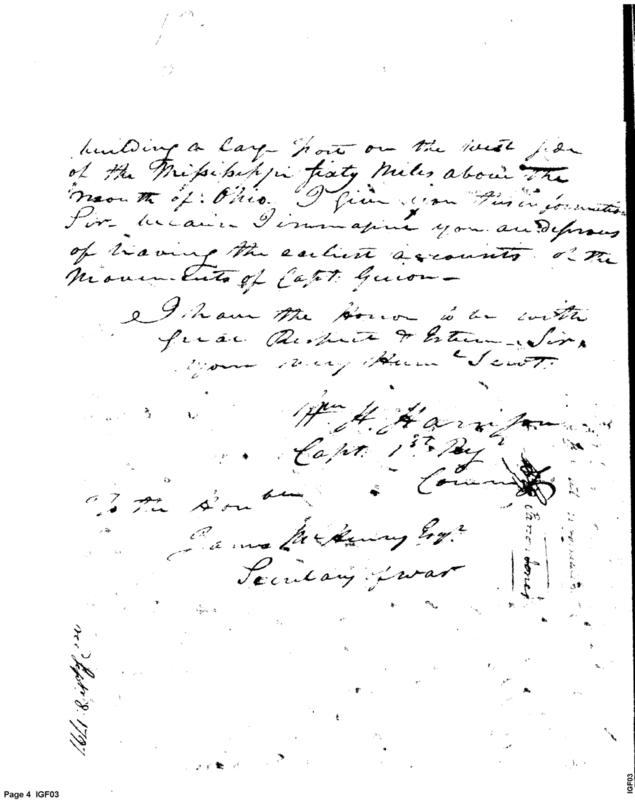 building a large Fort on the West side
of the Mississippi sixty Miles above the
Mouth of Ohio. I give you this information
Sir because I immagine you are desirous
of having the earliest accounts of the
Movements of Capt. Guion –
I have the Honor to be with
great Respect & Esteem Sir
your very Humle Servt.
Wm H. Harrison
Capt. 1st Regt
Comm
To the Honble
James McHenry Esqr.
Secretary of war
Page 4 IGF03
IGF03